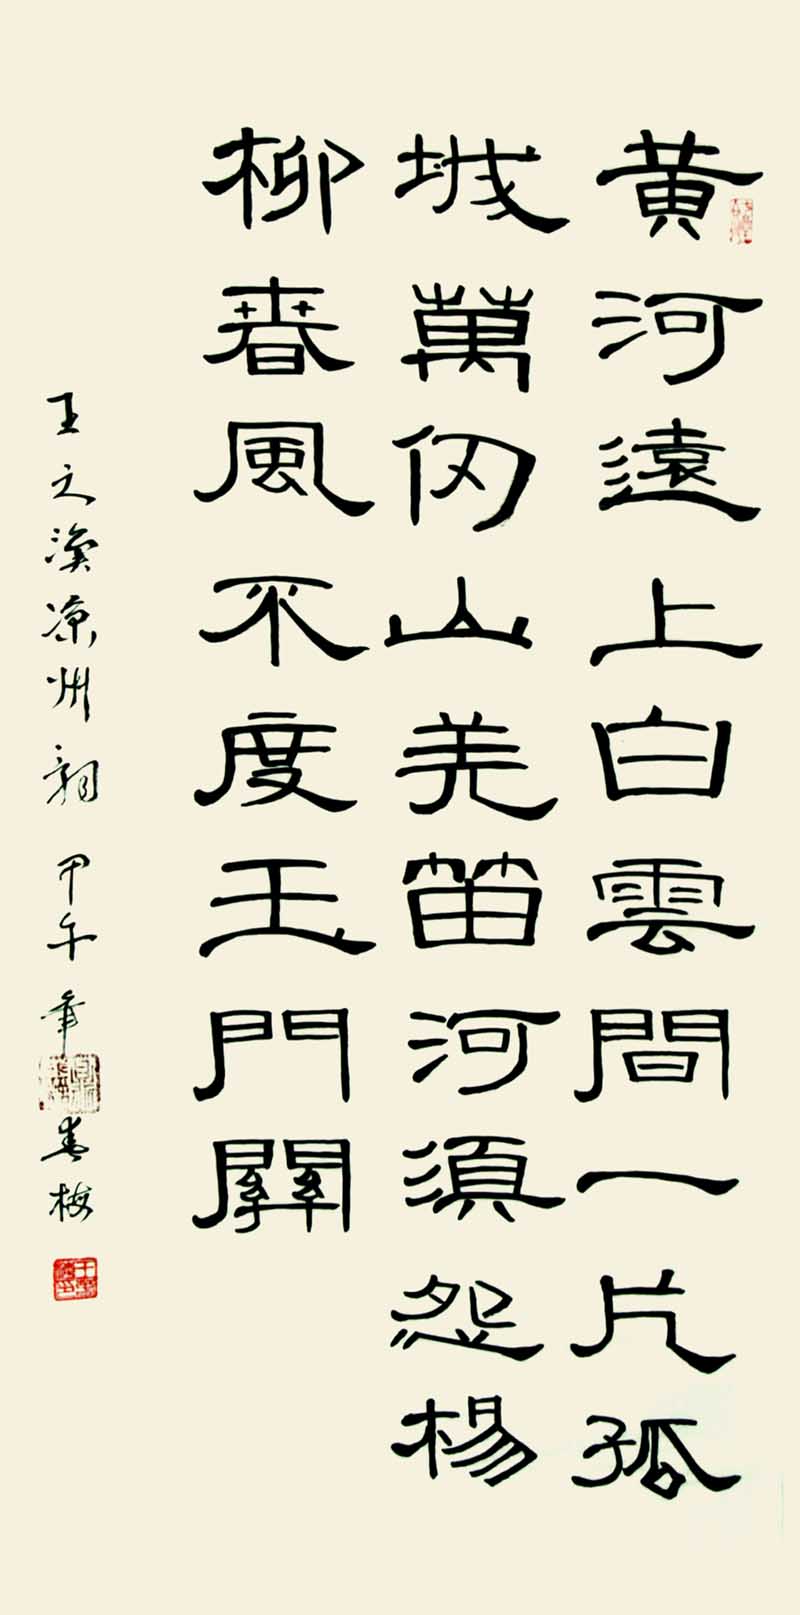 黄河遠上白雲間一片孤
城萬仞山羌笛河須怨楊
柳春風不度玉門關
王之渙凉州詞 甲午年 春梅